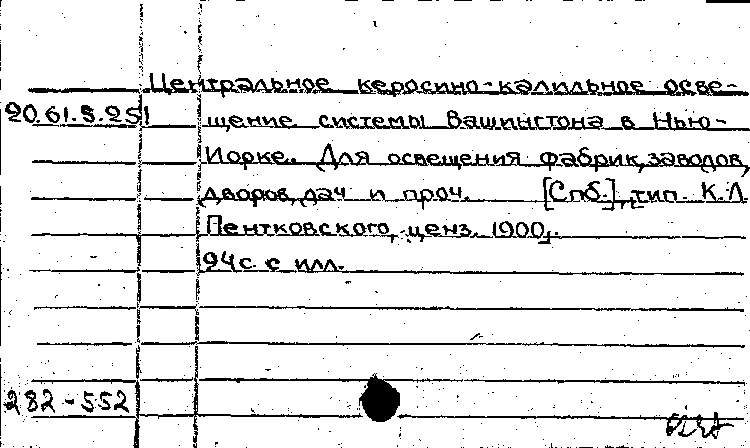 Центральное керосино-калильное осве-
20.61.8.251 щение системы Вашингтона в Нью-
Иорке. Для освещения фабрик, заводов,
дворов, дач и проч. [Спб.], тип. К.Л.
Пентковского, ценз. 1900.
94с. с илл.
282-552